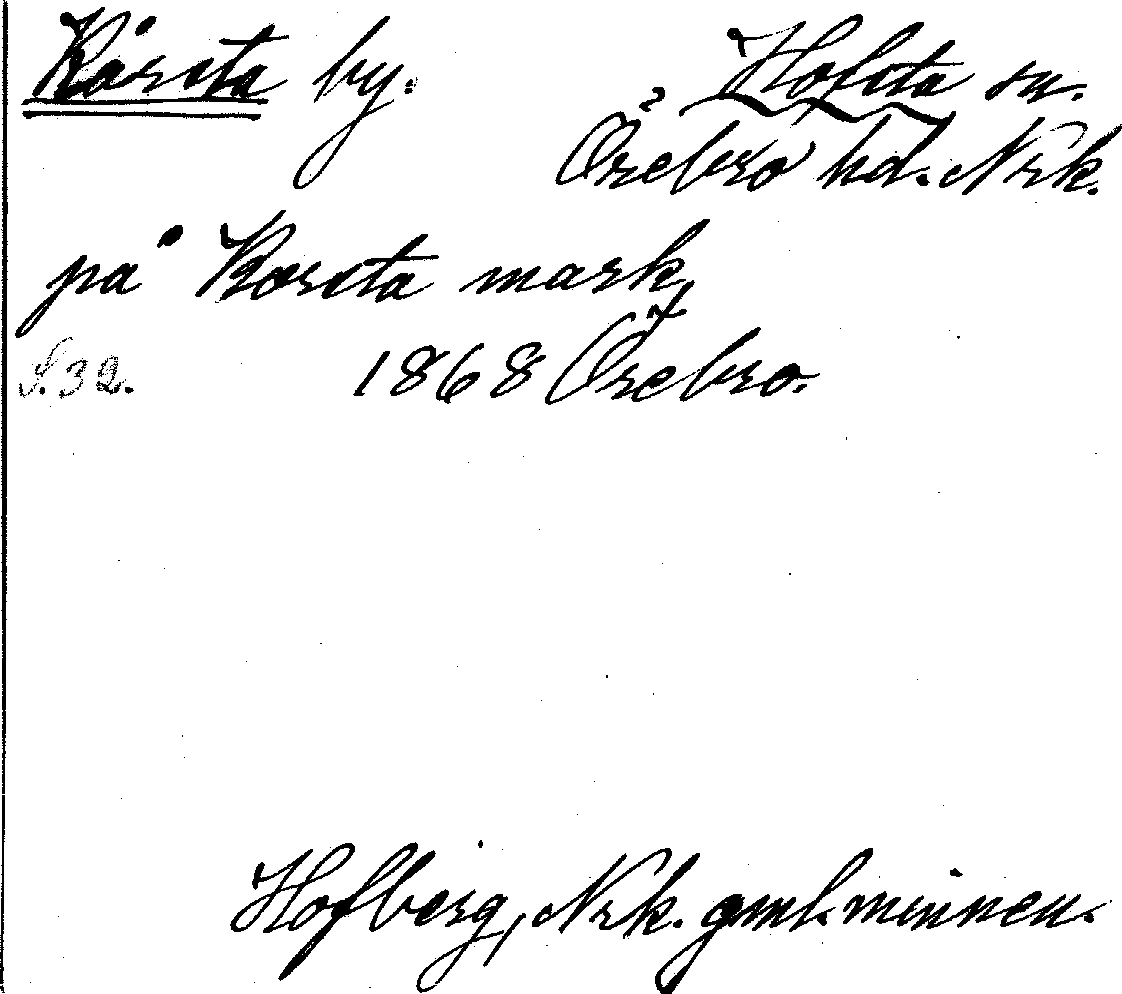 Kårsta by. Hofsta sn.
Örebro hd. Nrk.
på Korsta mark,
S. 32. 1868 Örebro.
Hofberg, Nrk. gml. minnen.